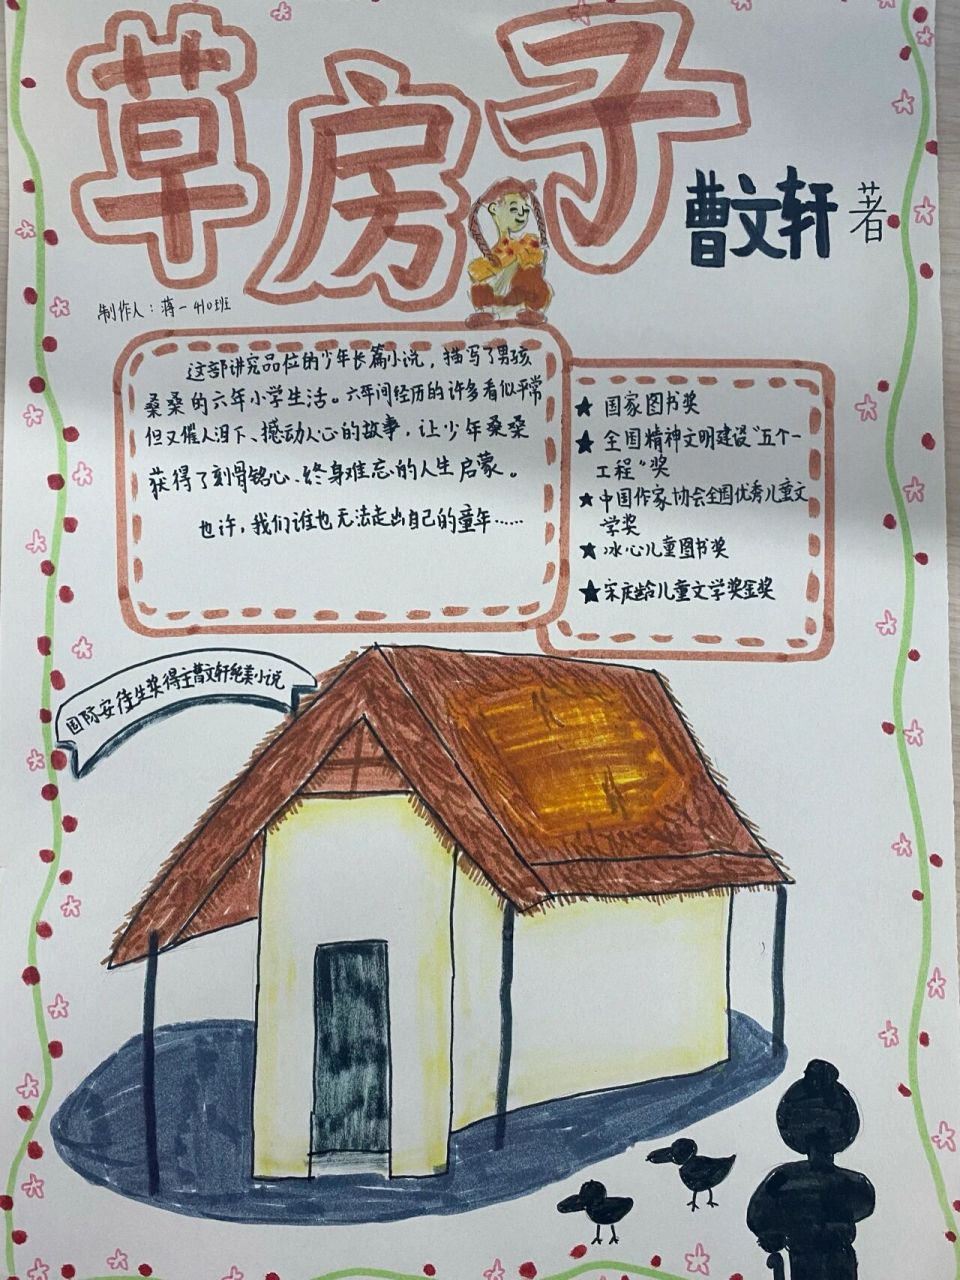 草房子
曹文轩 著
制作人：蒋一 410班
这部讲究品位的少年长篇小说，描写了男孩
桑桑的六年小学生活。六年间经历的许多看似平常
但又催人泪下、撼动人心的故事，让少年桑桑
获得了刻骨铭心、终身难忘的人生启蒙。
也许，我们谁也无法走出自己的童年……
★ 国家图书奖
★ 全国精神文明建设“五个一
工程”奖
★ 中国作家协会全国优秀儿童文
学奖
★ 冰心儿童图书奖
★ 宋庆龄儿童文学奖金奖
国际安徒生奖得主曹文轩纯美小说